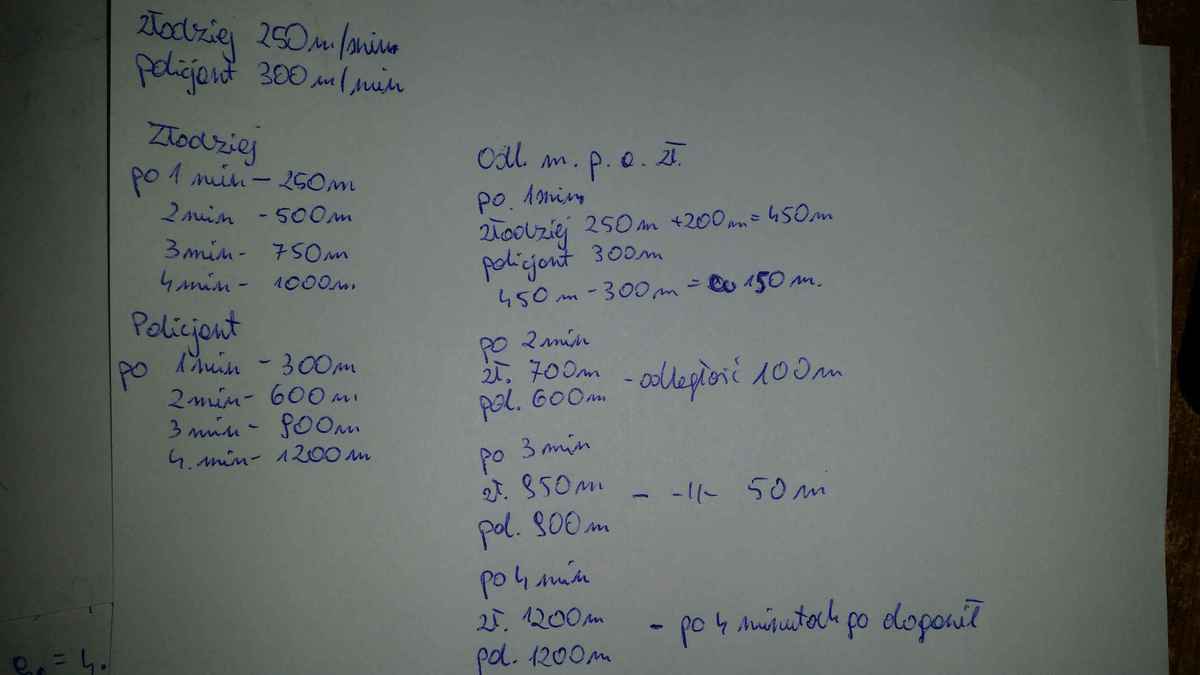 złodziej 250m/min
policjant 300m/min
Złodziej
po 1 min – 250m
2min - 500m
3min - 750m
4min - 1000m.
Policjant
po 1min - 300m
2min - 600m.
3min - 900m
4.min - 1200m
Odl. m. p. a. zł.
po. 1min
złodziej 250m +200m = 450m
policjant 300m
450m - 300m = 150m.
po 2min
zł. 700m - odległość 100m
pol. 600m
po 3min
zł. 950m - -||- 50m
pol. 900m
po 4min
zł. 1200m - po 4 minutach go dogonił
pol. 1200m
= 4.